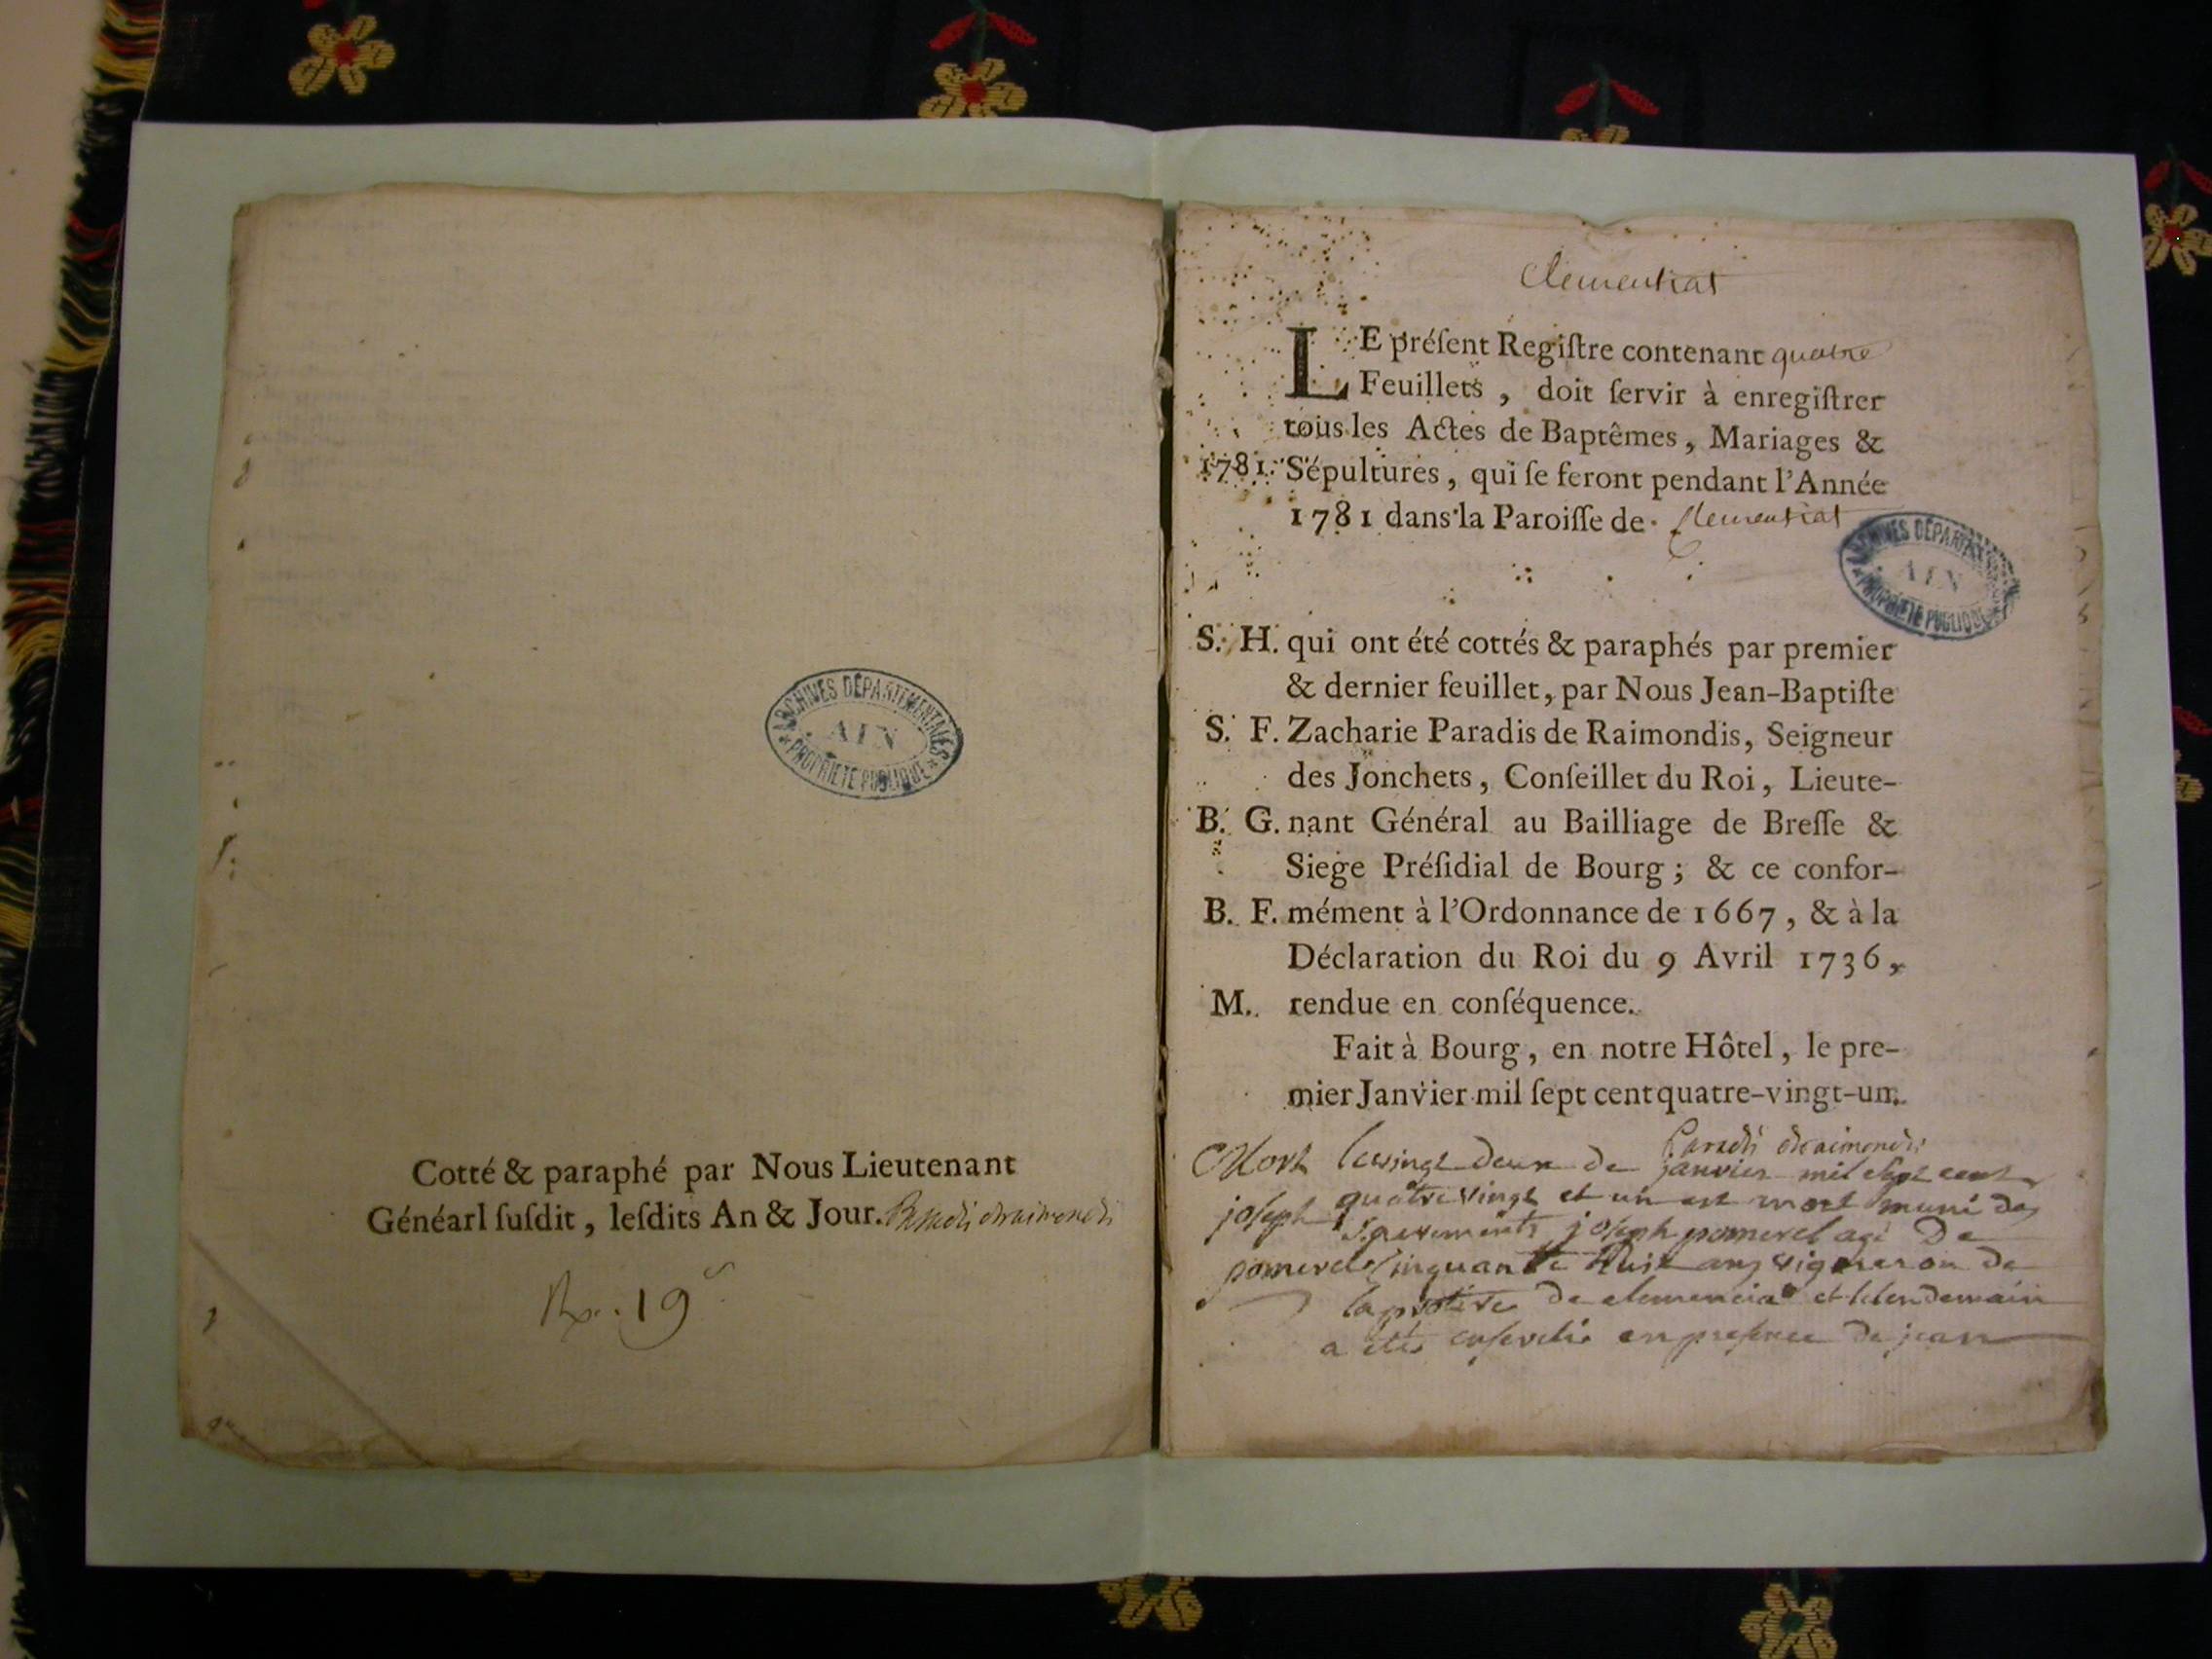 Cotté & paraphé par Nous Lieutenant
Généarl ſuſdit, leſdits An & Jour. Paradis deraimondis
Rx. 19ˢ
ARCHIVES DÉPARTEMENTALES
AIN
PROPRIÉTÉ PUBLIQUE
Clementiat
LE préſent Regiſtre contenant quatre
Feuillets, doit ſervir à enregiſtrer
tous les Actes de Baptêmes, Mariages &
1781. Sépultures, qui ſe feront pendant l'Année
1781 dans la Paroiſſe de Clementiat
ARCHIVES DÉPARTEMENTALES
AIN
PROPRIÉTÉ PUBLIQUE
S. H. qui ont été cottés & paraphés par premier
& dernier feuillet, par Nous Jean-Baptiſte
S. F. Zacharie Paradis de Raimondis, Seigneur
des Jonchets, Conſeillet du Roi, Lieute-
B. G. nant Général au Bailliage de Breſſe &
Siege Préſidial de Bourg; & ce confor-
B. F. mément à l'Ordonnance de 1667, & à la
Déclaration du Roi du 9 Avril 1736,
M. rendue en conſéquence.
Fait à Bourg, en notre Hôtel, le pre-
mier Janvier mil ſept cent quatre-vingt-un.
Paradis deraimondis
Mort le vingt deux de janvier mil sept cent
joseph quatre vingt et un est mort muni des
Sacrements joseph pomerel agé De
pomerel Cinquante huit ans vigneron de
la de clemencia et le lendemain
a été enseveli en presence de jean